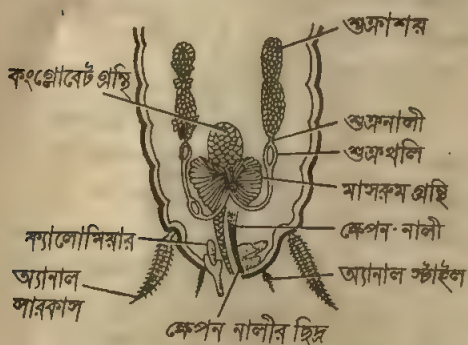 শুক্রাশয়
কংগ্লোবেট গ্রন্থি
শুক্রনালী
শুক্রথলি
মাসরুম গ্রন্থি
ক্ষেপন-নালী
ক্যালোমিয়ার
অ্যানাল
সারকাস
অ্যানাল স্টাইল
ক্ষেপন নালীর ছিদ্র